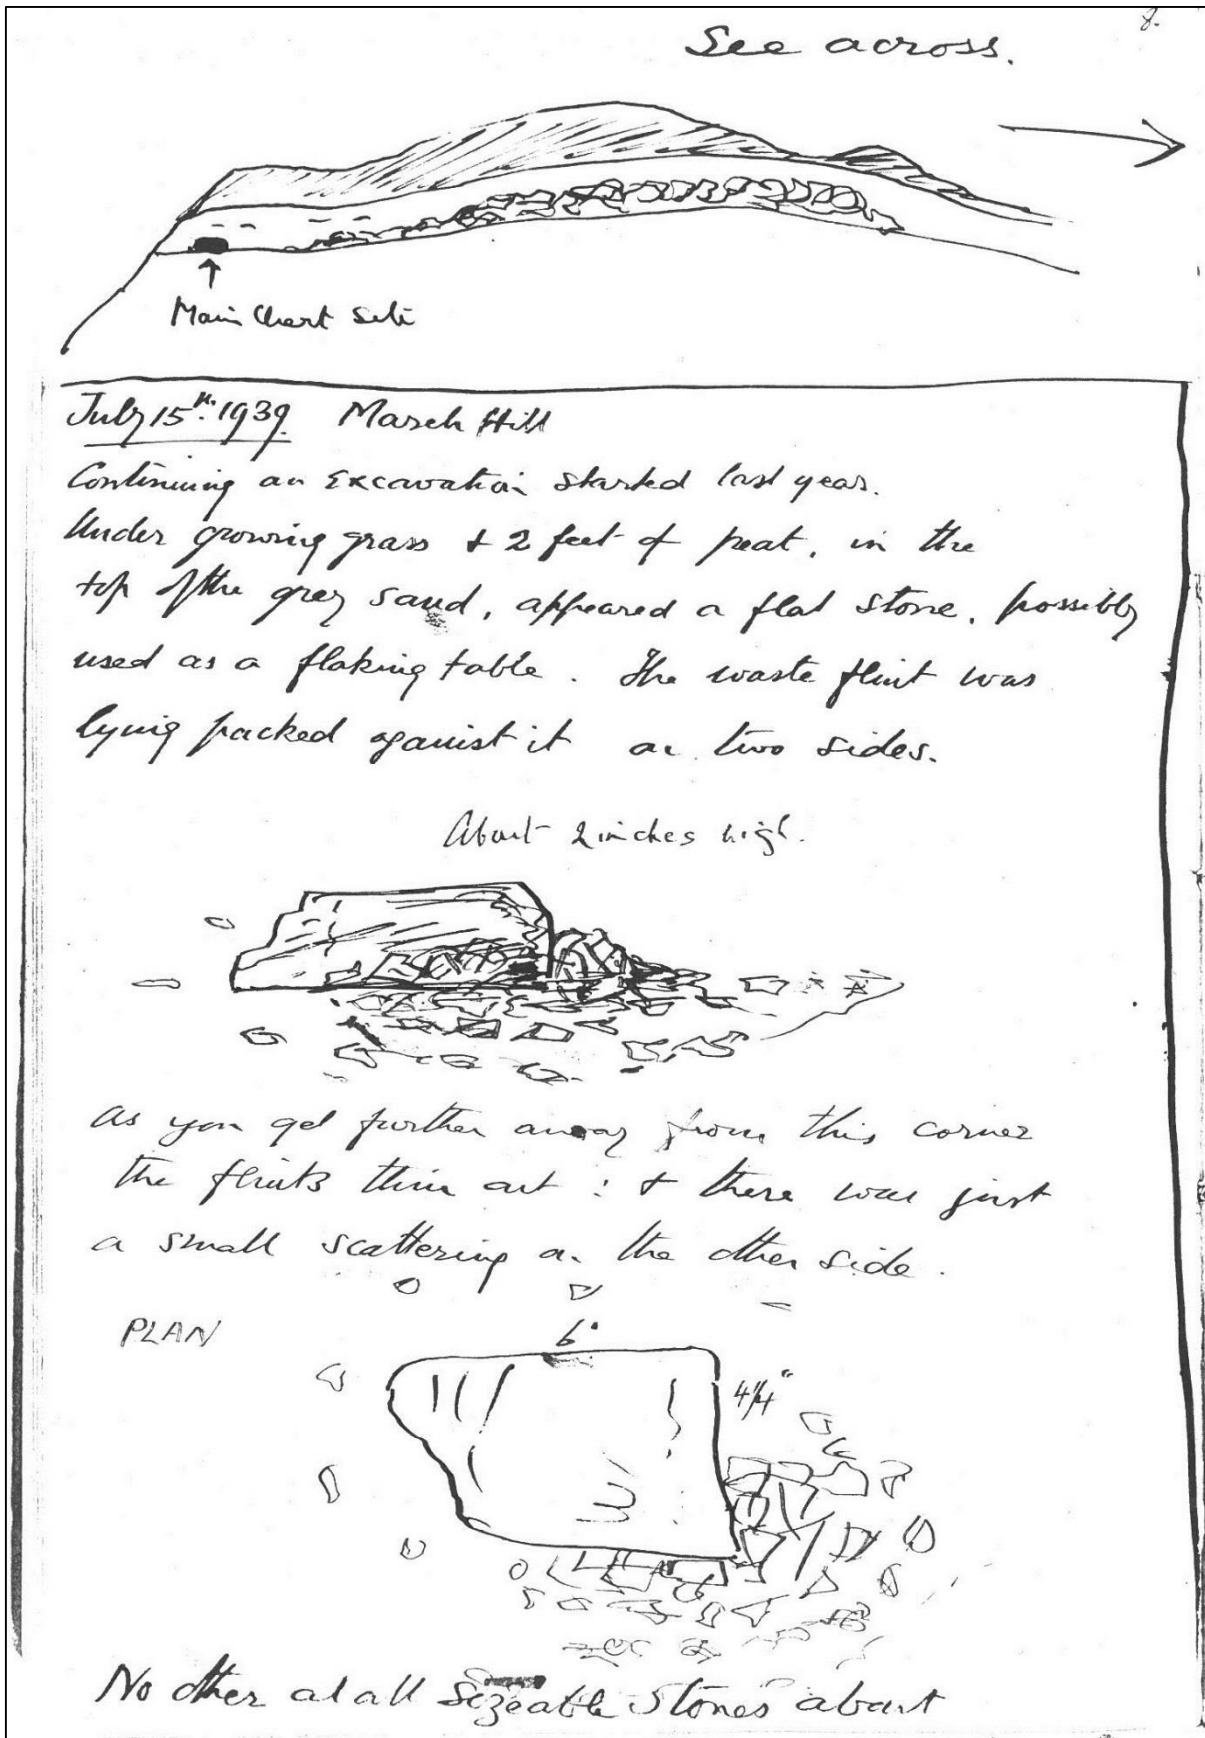 8.
See across.
Main Chert Site
July 15th. 1939. March Hill
Continuing an excavation started last year.
Under growing grass & 2 feet of peat, in the
top of the grey sand, appeared a flat stone, possibly
used as a flaking table. The waste flint was
lying packed against it on two sides.
About 2 inches high.
As you get further away from this corner
the flints thin out : & there was just
a small scattering on the other side.
PLAN
6"
4 1/4"
No other at all sizeable stones about